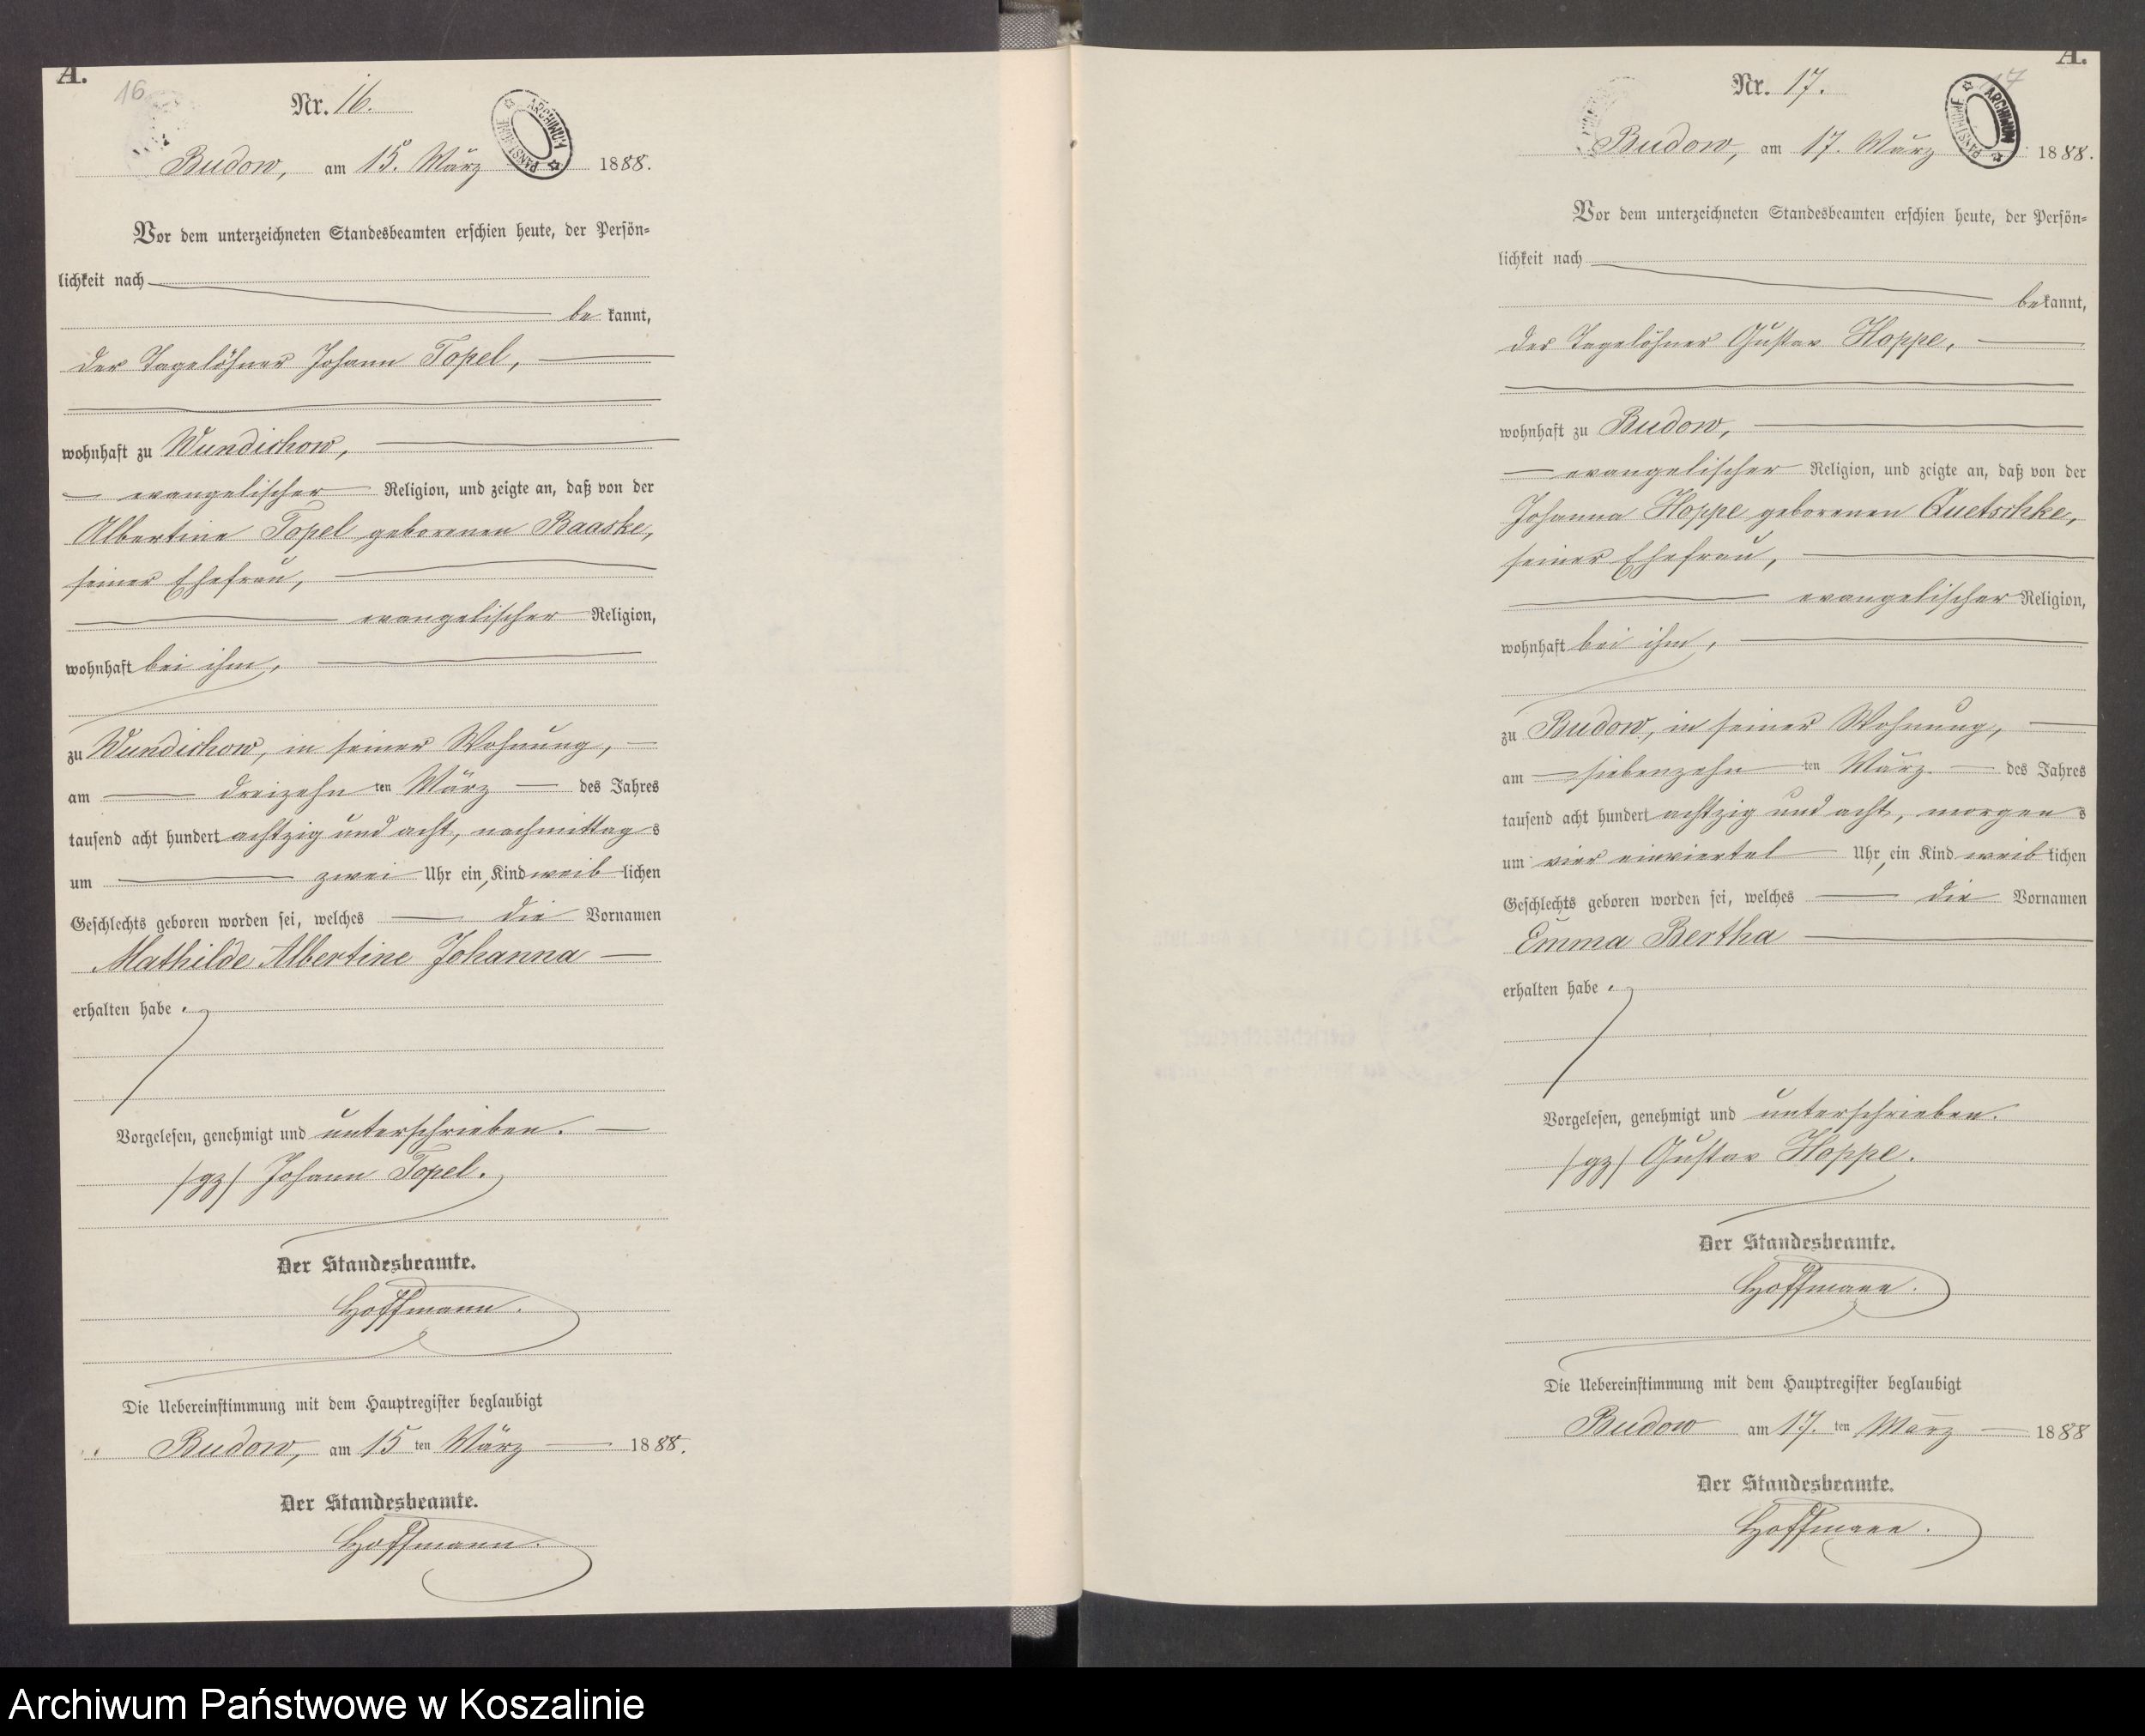 A.
16
Nr. 16.
Budow, am 15. März 1888.
Vor dem unterzeichneten Standesbeamten erschien heute, der Persön-
lichkeit nach
be kannt,
der Tagelöhner Johann Topel,
wohnhaft zu Wundichow,
evangelischer Religion, und zeigte an, daß von der
Albertine Topel geborenen Baaske,
seiner Ehefrau,
evangelischer Religion,
wohnhaft bei ihm,
zu Wundichow, in seiner Wohnung,
am dreizehn ten März des Jahres
tausend acht hundert achtzig und acht, nachmittag s
um zwei Uhr ein Kind weib lichen
Geschlechts geboren worden sei, welches die Vornamen
Mathilde Albertine Johanna
erhalten habe.
Vorgelesen, genehmigt und unterschrieben.
/gz/ Johann Topel.
Der Standesbeamte.
Hoffmann.
Die Uebereinstimmung mit dem Hauptregister beglaubigt
Budow, am 15 ten März 1888.
Der Standesbeamte.
Hoffmann.
A.
17
Nr. 17.
ARCHIWUM PAŃSTWOWE
Budow, am 17. März 1888.
Vor dem unterzeichneten Standesbeamten erschien heute, der Persön-
lichkeit nach
be kannt,
der Tagelöhner Gustav Hoppe,
wohnhaft zu Budow,
evangelischer Religion, und zeigte an, daß von der
Johanna Hoppe geborenen Quetschke,
seiner Ehefrau,
evangelischer Religion,
wohnhaft bei ihm,
zu Budow, in seiner Wohnung,
am siebenzehn ten März des Jahres
tausend acht hundert achtzig und acht, morgen s
um vier einviertel Uhr, ein Kind weib lichen
Geschlechts geboren worden sei, welches die Vornamen
Emma Bertha
erhalten habe.
Vorgelesen, genehmigt und unterschrieben.
/gz/ Gustav Hoppe.
Der Standesbeamte.
Hoffmann.
Die Uebereinstimmung mit dem Hauptregister beglaubigt
Budow am 17. ten März 1888
Der Standesbeamte.
Hoffmann.
Archiwum Państwowe w Koszalinie